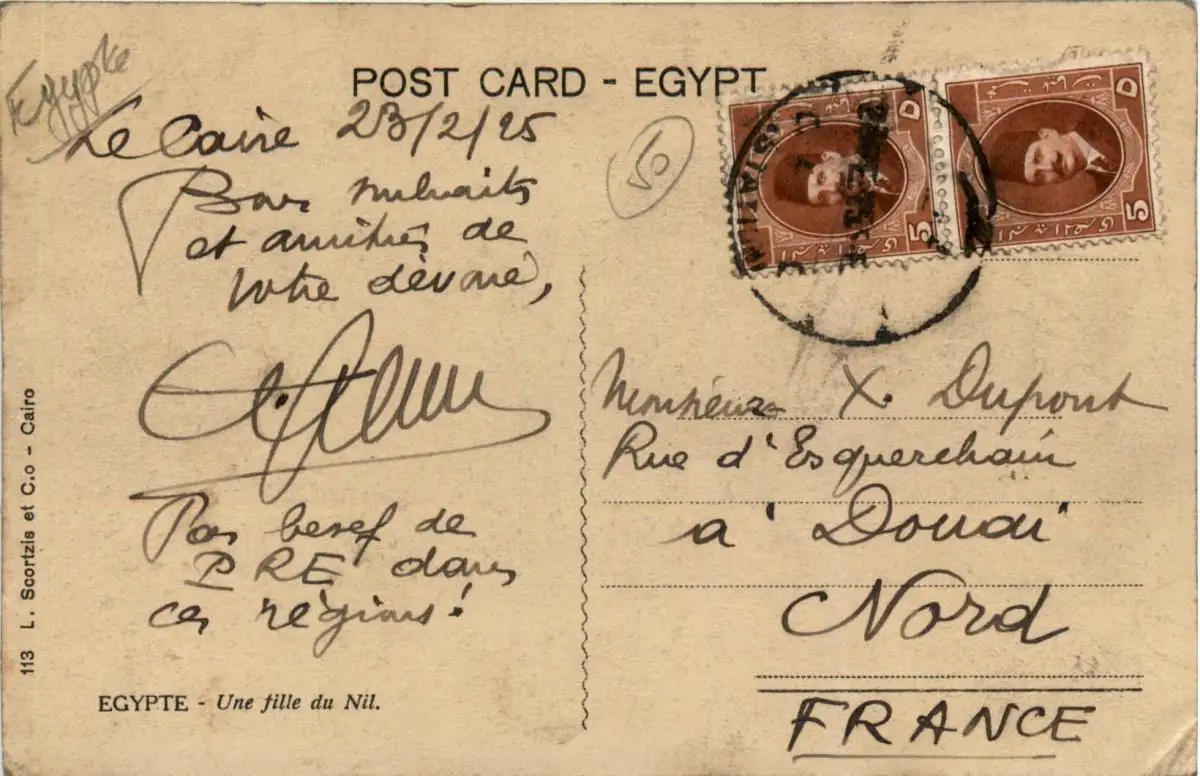 Egypte
POST CARD - EGYPT
Le Caire 23/2/25
Bons souhaits
et amitiés de
votre dévoué,
Pas besef de
PRE dans
ces régions!
EGYPTE - Une fille du Nil.
113 L. Scortzis et C.o - Cairo
50
D
5
D
5
STATION
Monsieur X. Dupont
Rue d'Esquerchain
à Douai
Nord
FRANCE